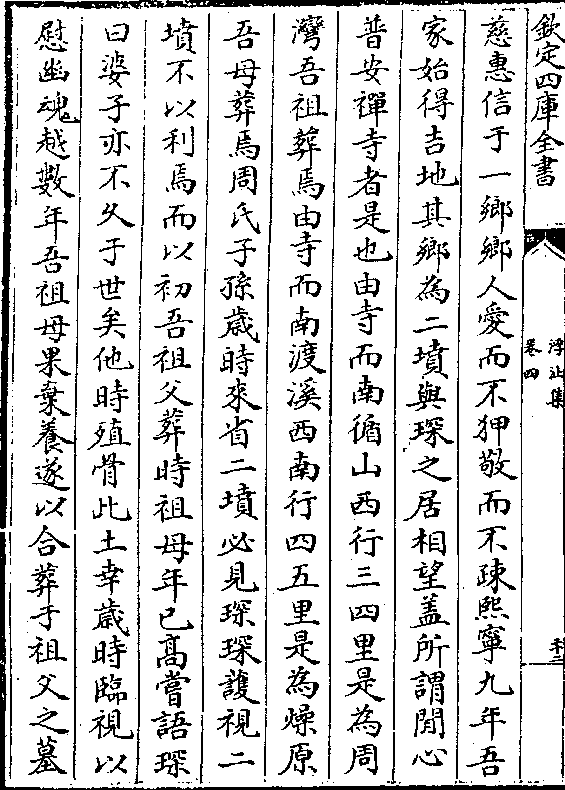 欽定四庫全書
浮沚集
卷四
慈惠信于一鄉鄉人愛而不狎敬而不疎熙寧九年吾
家始得吉地其鄉為二墳與琛之居相望盖所謂閒心
普安禪寺者是也由寺而南循山西行三四里是為周
灣吾祖葬焉由寺而南渡溪西南行四五里是為燥原
吾母葬焉周氏子孫歳時來省二墳必見琛琛護視二
墳不以利焉而以初吾祖父葬時祖母年已高嘗語琛
曰婆子亦不久于世矣他時殖骨此土幸歳時臨視以
慰幽魂越數年吾祖母果棄養遂以合葬于祖父之墓